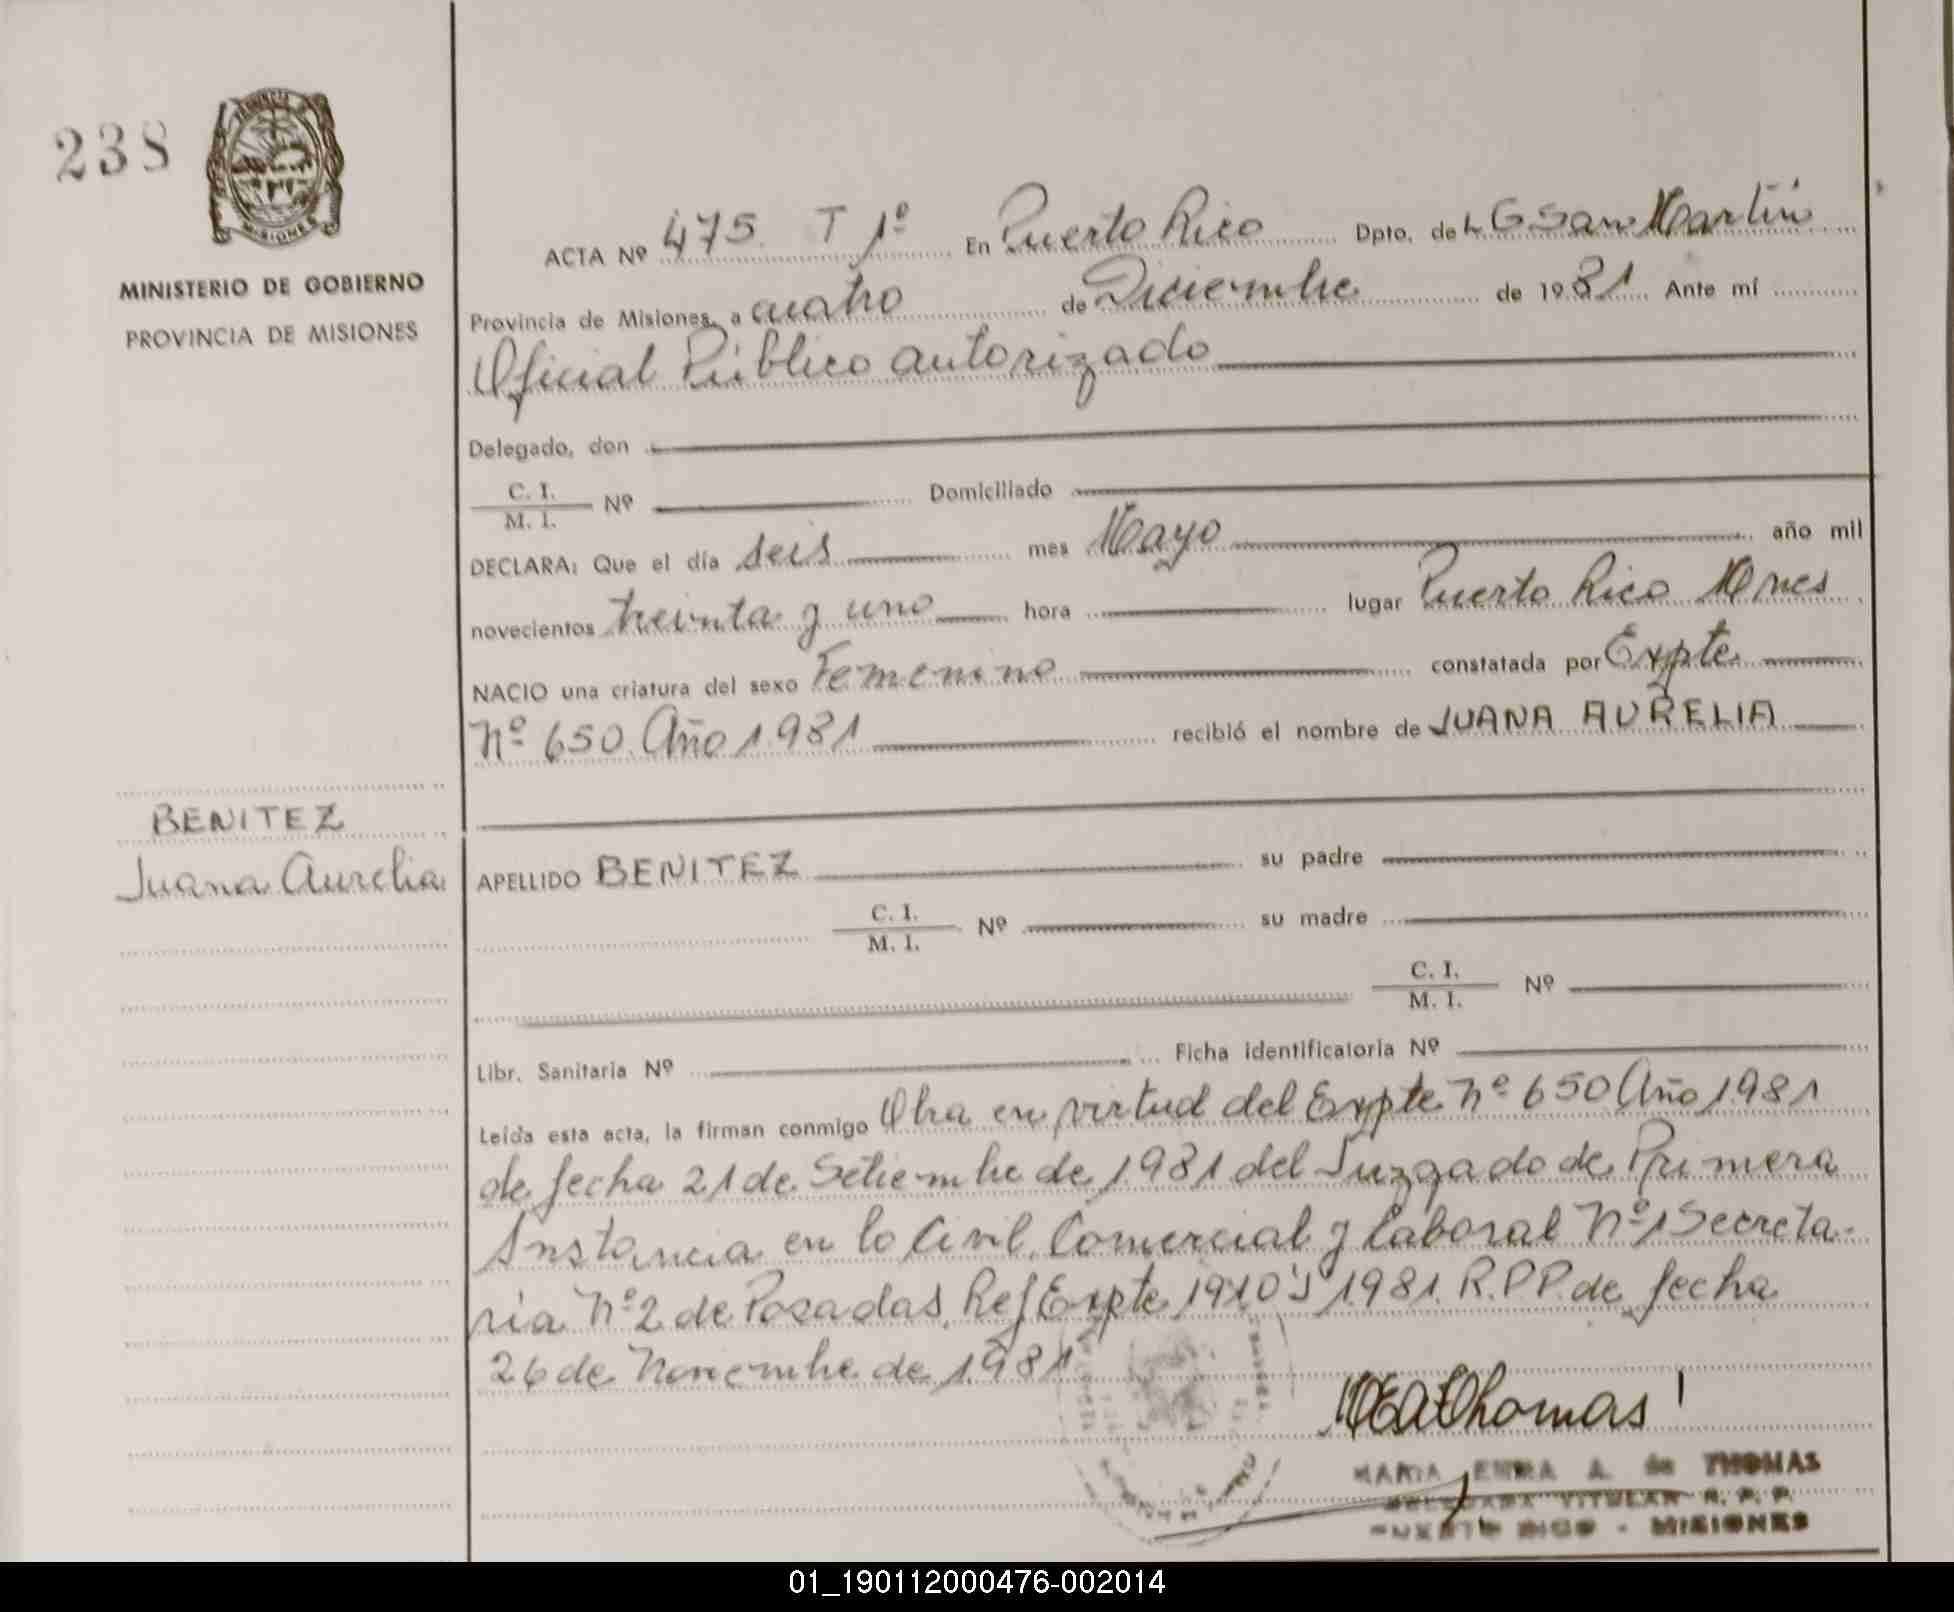 238
MISIONES
MINISTERIO DE GOBIERNO
PROVINCIA DE MISIONES
ACTA Nº 475 T 1º En Puerto Rico Dpto. de L G San Martín
Provincia de Misiones, a cuatro de Diciembre de 1981 Ante mí
Oficial Público autorizado
Delegado, don
C. I.
M. I. Nº Domiciliado
DECLARA: Que el día seis mes Mayo año mil
novecientos treinta y uno hora lugar Puerto Rico Mnes
NACIO una criatura del sexo Femenino constatada por Expte
Nº 650 Año 1981 recibió el nombre de JUANA AURELIA
BENITEZ
Juana Aurelia
APELLIDO BENITEZ su padre
C. I.
M. I. Nº su madre
C. I.
M. I. Nº
Libr. Sanitaria Nº Ficha identificatoria Nº
Leída esta acta, la firman conmigo Obra en virtud del Expte Nº 650 Año 1981
de fecha 21 de Setiembre de 1981 del Juzgado de Primera
Instancia en lo Civil, Comercial y Laboral Nº 1 Secreta-
ria Nº 2 de Posadas, Ref Expte 1981. R.P.P. de fecha
26 de Noviembre de 1981
MEAThomas
MARIA EMMA A. de THOMAS
DELEGADA TITULAR R. P. P.
PUERTO RICO - MISIONES
01_190112000476-002014